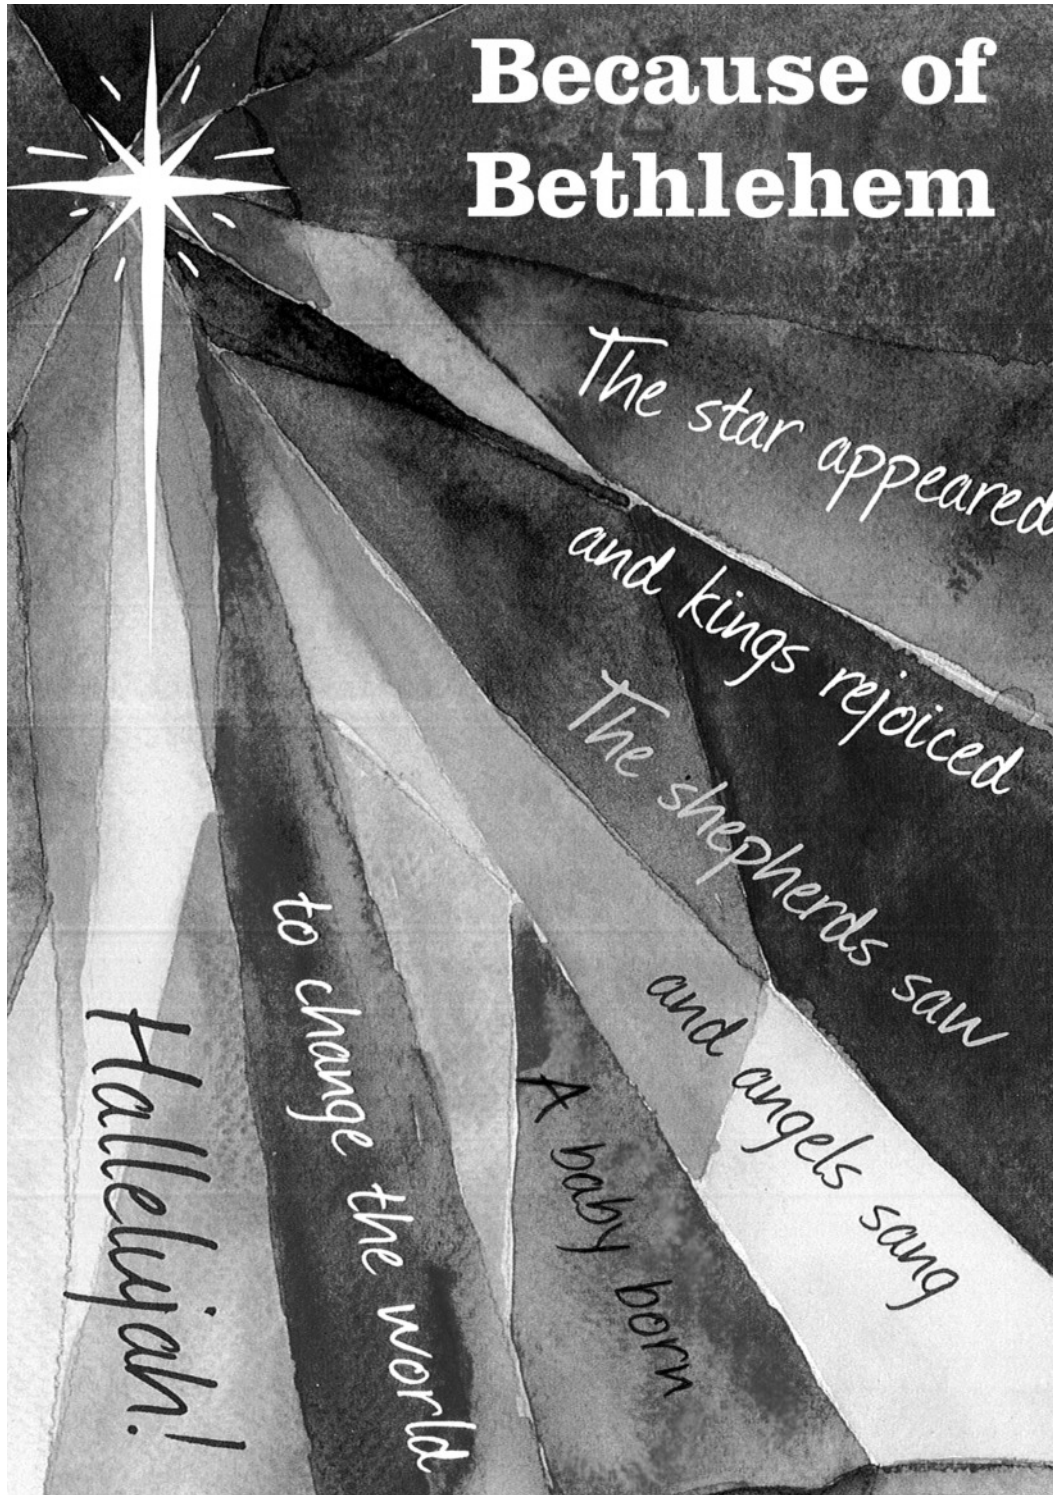 Because of
Bethlehem
The star appeared
and kings rejoiced
The shepherds saw
and angels sang
A baby born
to change the world
Hallelujah!